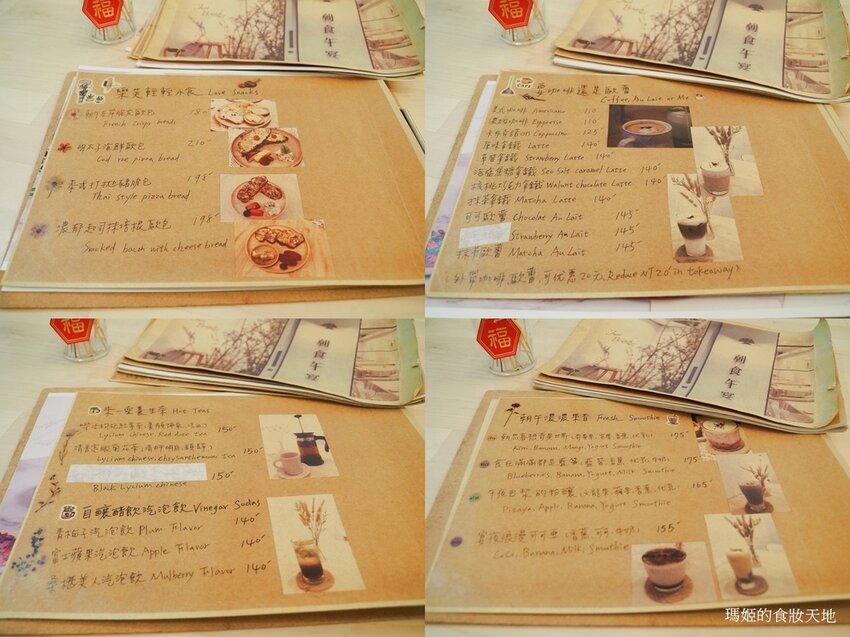 福
朝食午宴
Love Snacks
180
French crispy breads
明太子海鮮歐包 210
Cod roe pizza bread
泰式打拋豬脆包 198
Thai style pizza bread
198
Smoked bacon with cheese bread
朝食午宴
咖啡還是歐蕾
Coffee, Au Lait or Me
美式咖啡 Americano 110
濃縮咖啡 Espresso 110
Cappuccino 125
原味拿鐵 Latte 140
草莓拿鐵 Strawberry Latte 140
海鹽焦糖拿鐵 Sea Salt caramel Latte 140
核桃巧克力拿鐵 Walnut chocolate Latte 140
抹茶拿鐵 Matcha Latte 140
可可歐蕾 Chocolate Au Lait 145
Strawberry Au Lait 145
抹茶歐蕾 Matcha Au Lait 145
(外帶咖啡、歐蕾,可優惠20元, Reduce NT20 in takeaway)
福
朝食午宴
養生茶 Hot Teas
150
Lycium chinese, Red date Tea
150
Lycium chinese, chrysanthemum Tea
150
Black Lycium chinese
自釀醋飲汽泡飲 Vinegar Sodas
青梅子汽泡飲 Plum Flavor 140
富士蘋果汽泡飲 Apple Flavor 140
桑椹美人汽泡飲 Mulberry Flavor 140
福
朝食午宴
朝午濃濃果昔 Fresh Smoothie
175
Kiwi, Banana, Mango, Yogurt Smoothie
175
Blueberries, Banana, Yogurt, Milk Smoothie
165
Pitaya, Apple, Banana, Yogurt Smoothie
155
CoCo, Banana, Milk, Smoothie
瑪姬的食妝天地